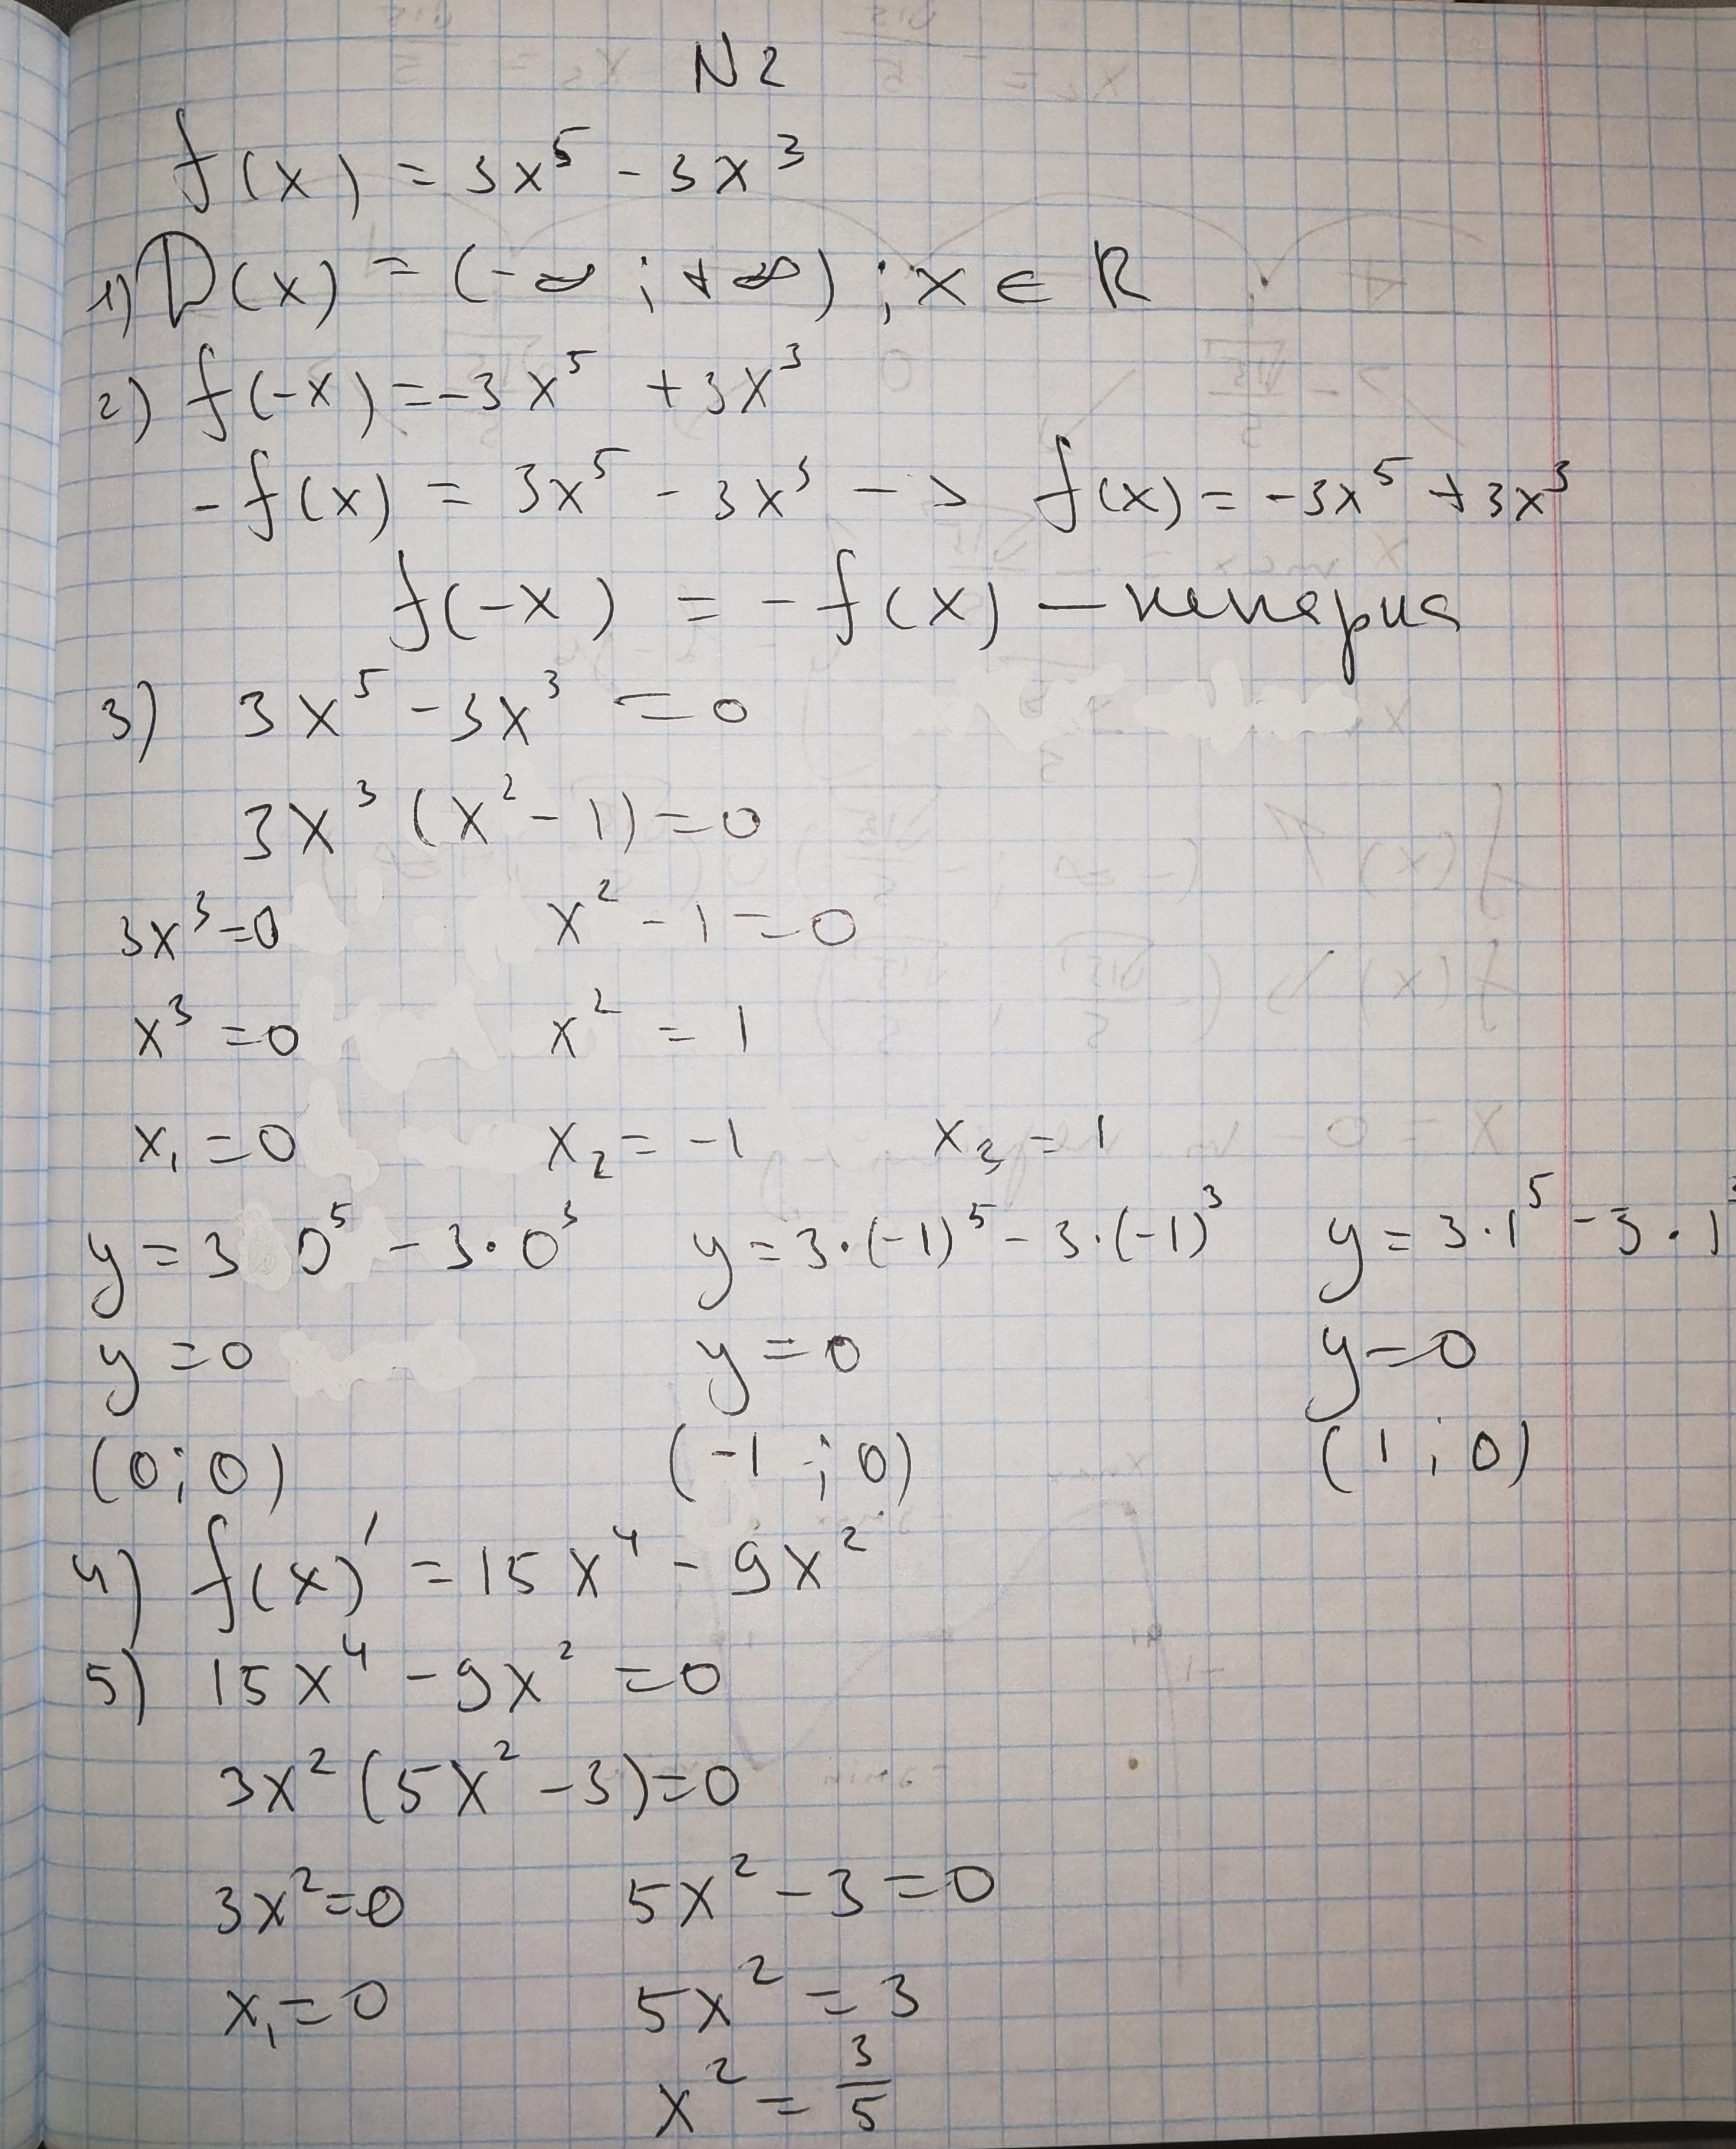 N2
f(x) = 3x⁵ - 3x³
1) D(x) = (-∞ ; +∞) ; x ∈ R
2) f(-x) = -3x⁵ + 3x³
-f(x) = 3x⁵ - 3x³ -> f(x) = -3x⁵ + 3x³
f(-x) = -f(x) — непарна
3) 3x⁵ - 3x³ = 0
3x³ (x² - 1) = 0
3x³ = 0 x² - 1 = 0
x³ = 0 x² = 1
x₁ = 0 x₂ = -1 x₃ = 1
y = 3 0⁵ - 3·0³ y = 3·(-1)⁵ - 3·(-1)³ y = 3·1⁵ - 3·1³
y = 0 y = 0 y = 0
(0;0) (-1 ; 0) (1 ; 0)
4) f(x)' = 15x⁴ - 9x²
5) 15x⁴ - 9x² = 0
3x² (5x² - 3) = 0
3x² = 0 5x² - 3 = 0
x₁ = 0 5x² = 3
x² = 3/5